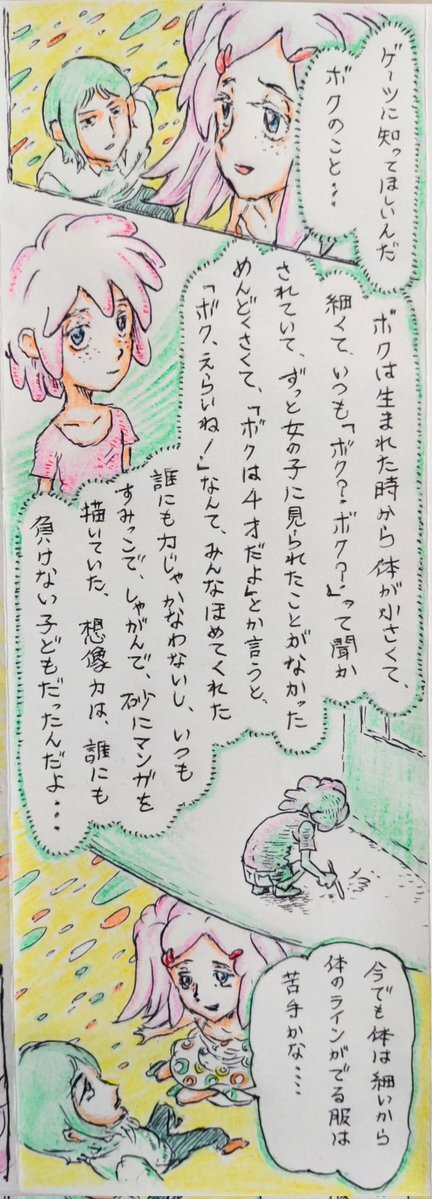 ゲーツに知ってほしいんだ
ボクのこと…
ボクは生まれた時から体が小さくて、
細くて、いつも「ボク?ボク?」って聞か
されていて、ずっと女の子に見られたことがなかった
めんどくさくて、「ボクは4才だよ」とか言うと、
「ボク、えらいね!」なんて、みんなほめてくれた
誰にも力じゃかなわないし、いつも
すみっこで、しゃがんで、砂にマンガを
描いていた、想像力は、誰にも
負けない子どもだったんだよ…
今でも体は細いから
体のラインがでる服は
苦手かな….